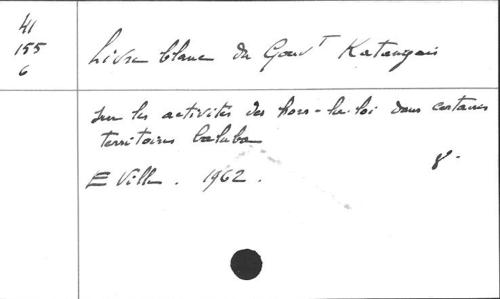 41
155
6
Livre blanc du Gouvt Katangais
sur les activités des hors-la-loi dans certains
territoires baluba
EVille. 1962.
8°